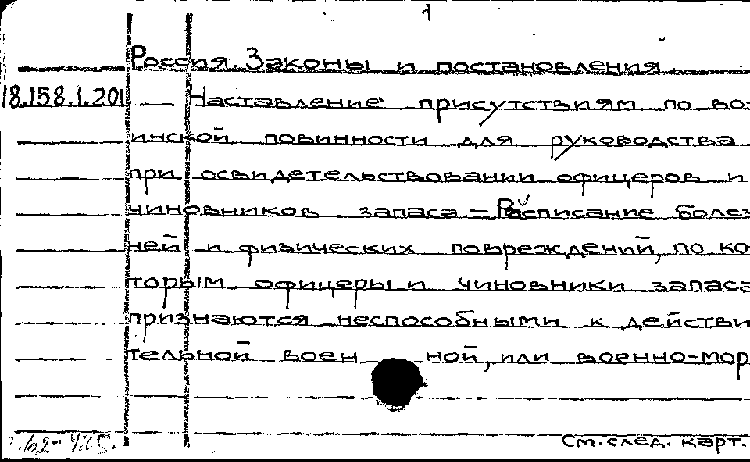 1
Россия. Законы и постановления
18.158.1.201 — Наставление присутствиям по во
инской повинности для руководства
при освидетельствовании офицеров и
чиновников запаса — Расписание болез
ней и физических повреждений, по ко
торым офицеры и чиновники запаса
признаются неспособными к действи
тельной воен ной, или военно-мор
См. след. карт.